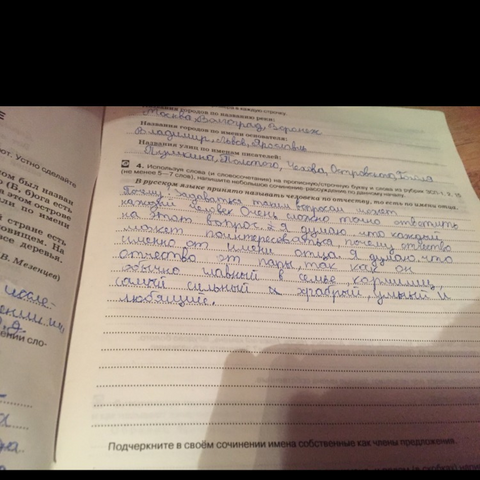 Названия городов по названию реки:
Москва, Волгоград, Воронеж
Названия городов по имени основателя:
Владимир, Львов, Ярославль
Названия улиц по именам писателей:
Пушкина, Толстого, Чехова, Островского, Гоголя
4. Используя слова (и словосочетания) на прописную/строчную букву и слова из рубрик
(не менее 5–7 слов), напишите небольшое сочинение-рассуждение по данному началу.
В русском языке принято называть человека по отчеству, то есть по имени отца.
Почему? Задаваться таким вопросом может
каждый человек. Очень сложно точно ответить
на этот вопрос. Я думаю, что каждый
может поинтересоваться, почему отчество
именно от имени отца. Я думаю, что
отчество от папы, так как он
обычно главный в семье, кормилец,
самый сильный и храбрый, умный и
любящий.
Подчеркните в своём сочинении имена собственные как члены предложения.
ют. устно сделайте
ом был назван
(В, б)юга ест
на этом острове
ли по имени
стране есть
ове деревья.
В. Мезенцев